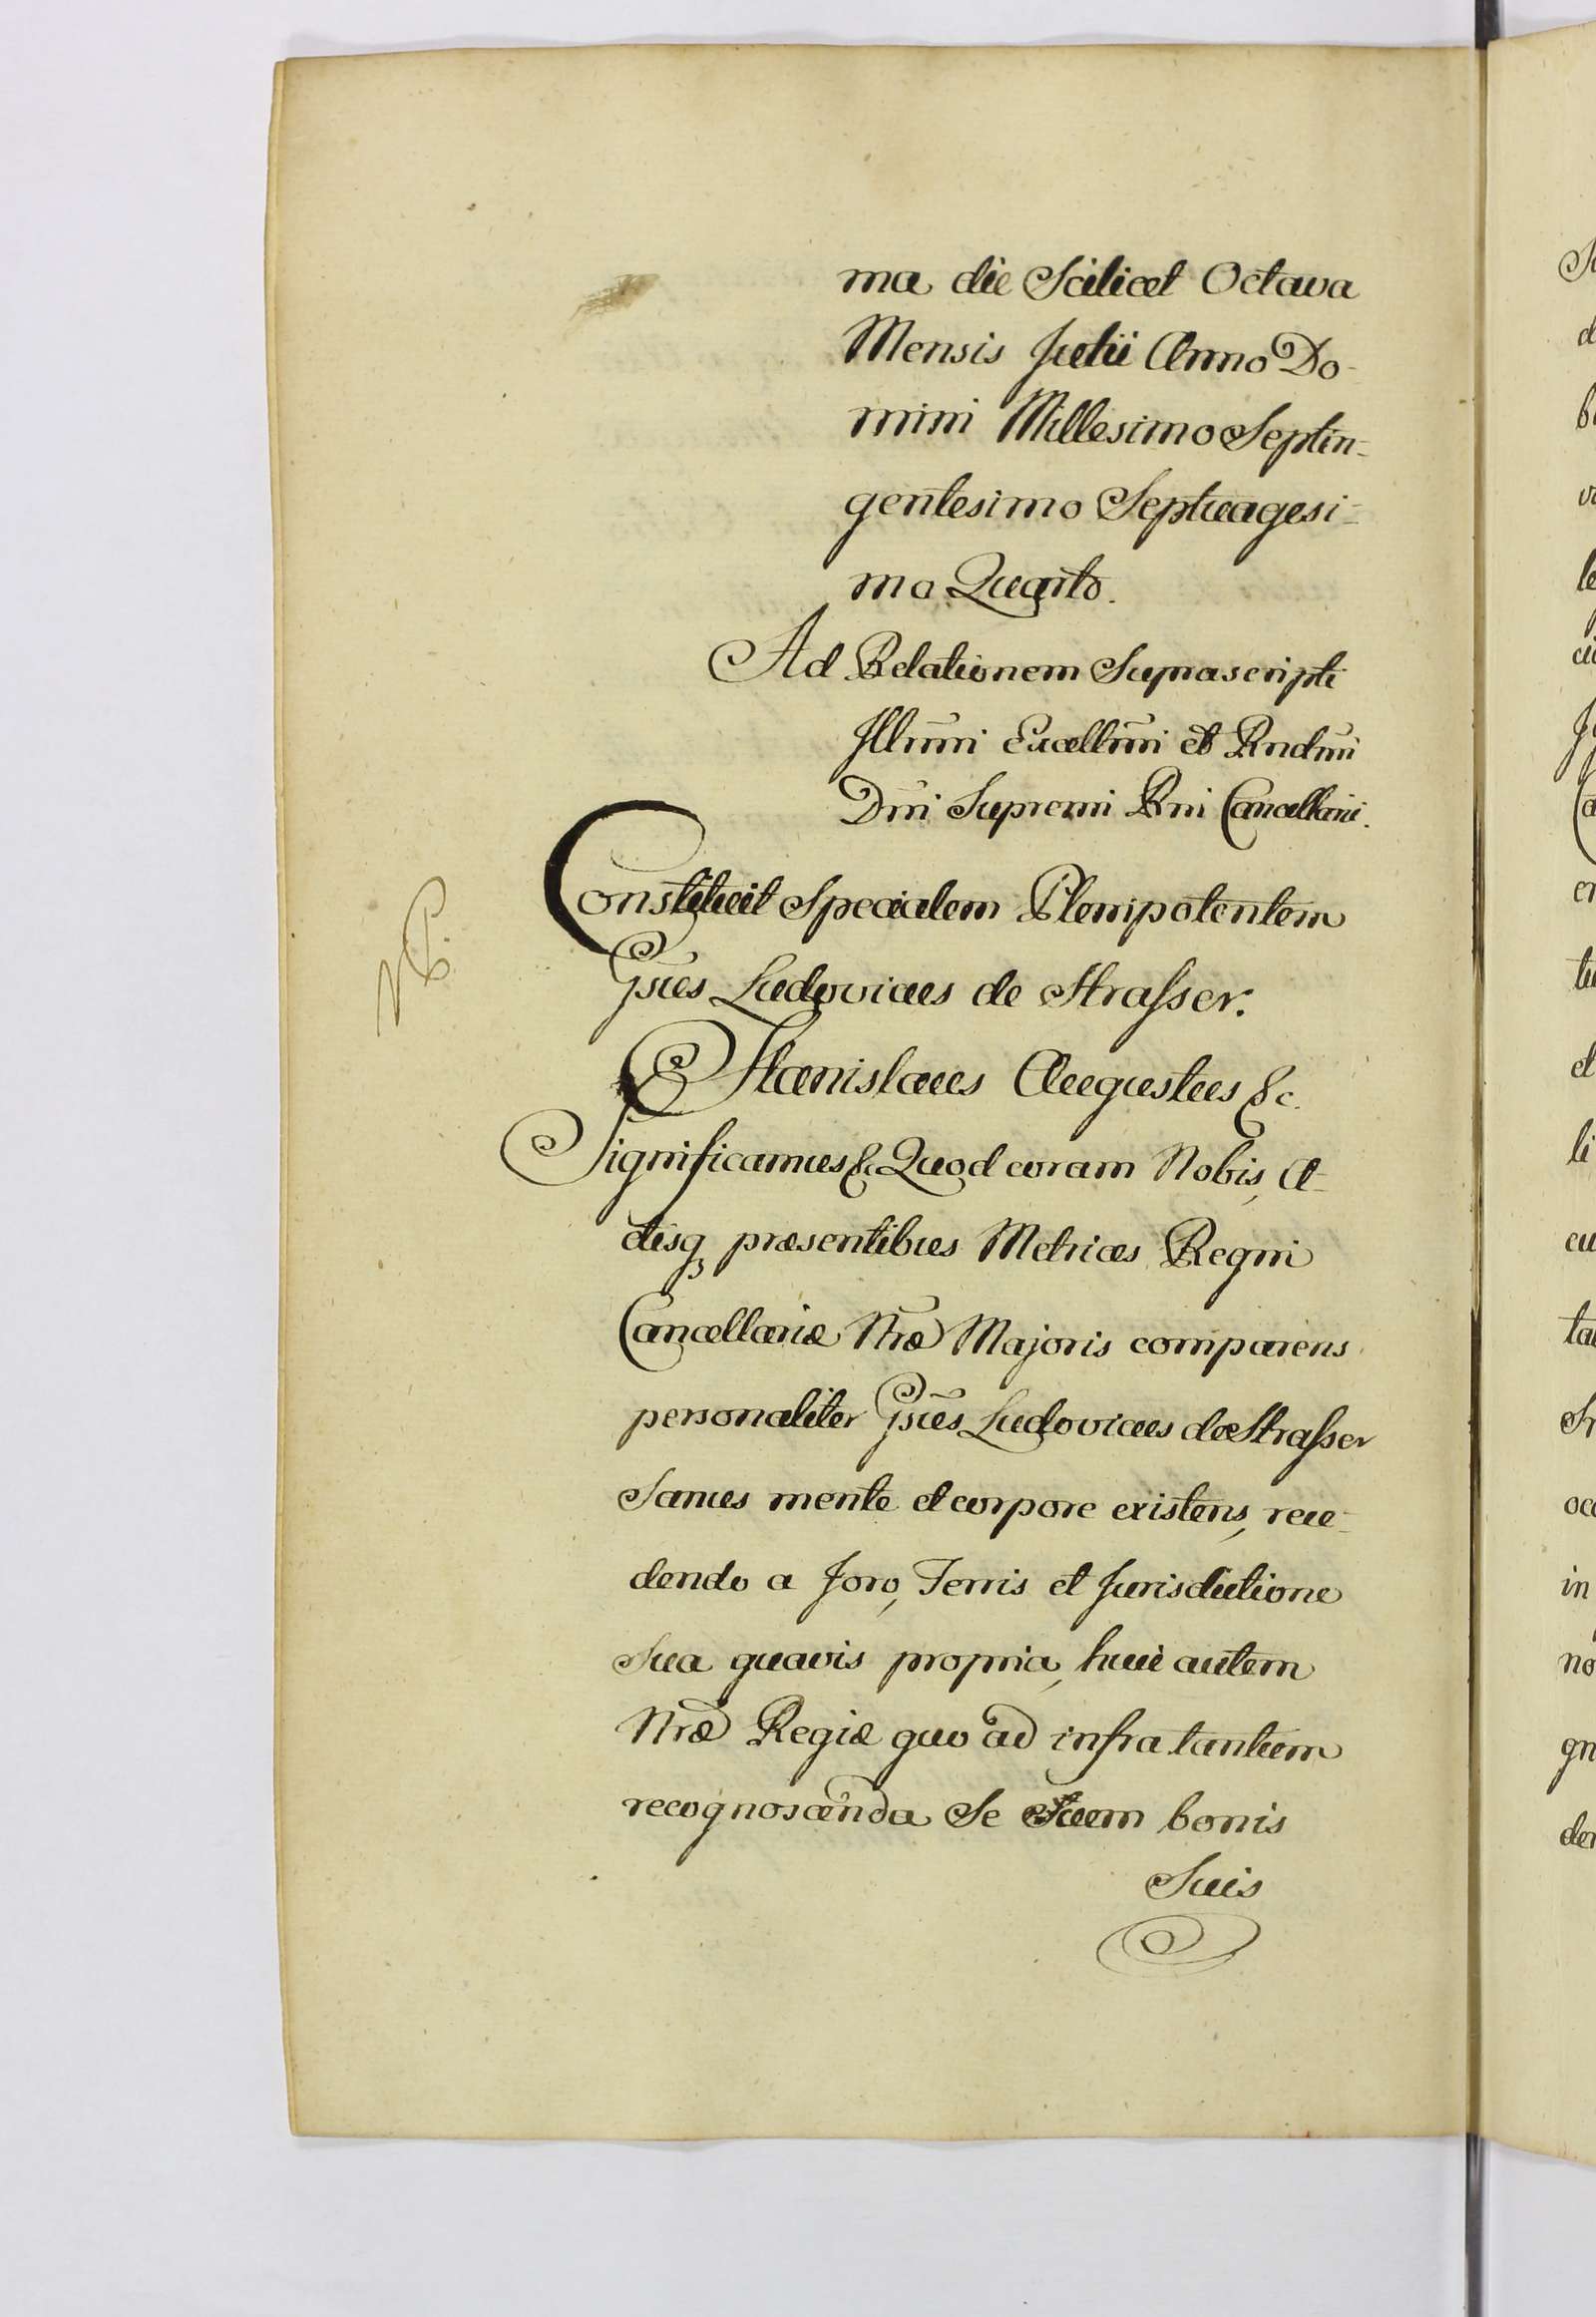 ma die Scilicet Octava
Mensis Julii Anno Do-
mini Millesimo Septin-
gentesimo Septuagesi-
mo Quarto.
Ad Relationem Suprascripti
Illrmi Excellmi et Rndmi
Dni Supremi Rni Cancellarii.
Constituit Specialem Plenipotentem
Gsus Ludovicus de Strasser.
Stanislaus Augustus &c.
Significamus &c Quod coram Nobis, A-
ctisq præsentibus Metrices Regni
Cancellariæ Nræ Majoris comparens
personaliter Gsus Ludovicus de Strasser
Sanus mente et corpore existens, rece-
dendo a foro, Terris et Jurisdictione
Sua quavis propria, huic autem
Nræ Regiæ quo ad infra tantum
recognoscenda Se cum bonis
Suis